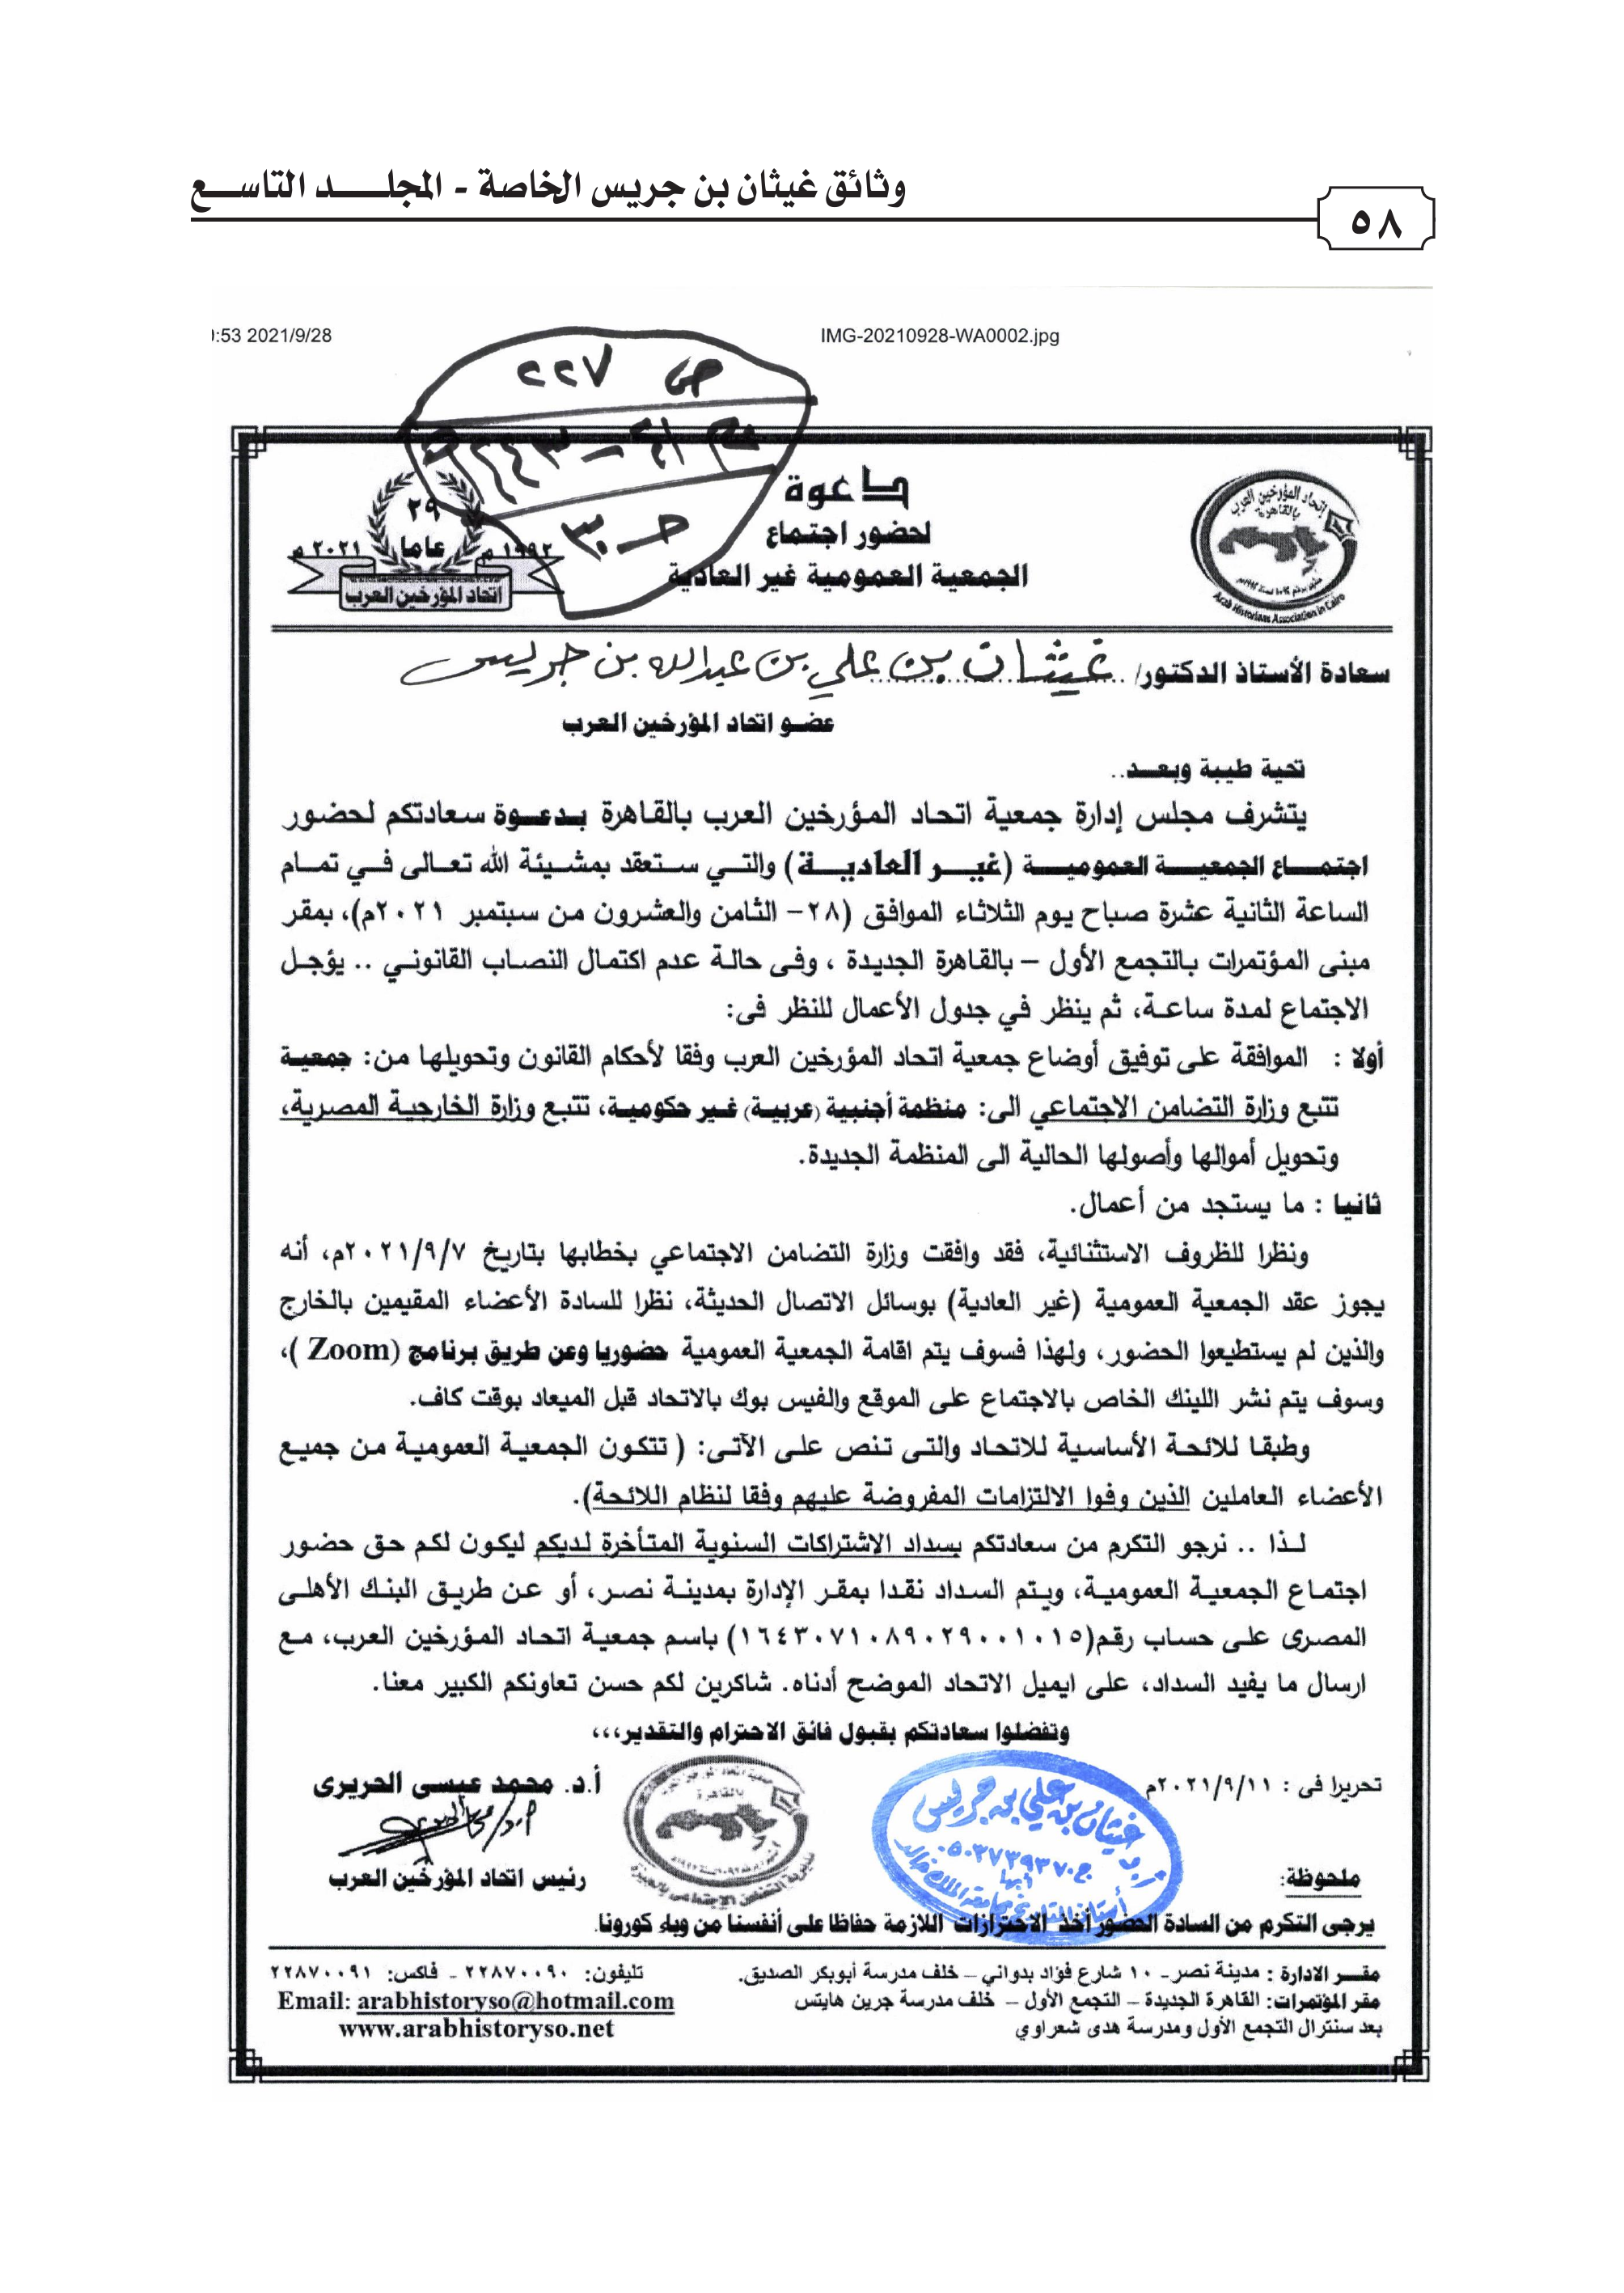 وثائق غيثان بن جريس الخاصة - المجلـــــد التاســـع
٥٨
:53 2021/9/28
IMG-20210928-WA0002.jpg
ص ٢٢٧
دعوة
لحضور اجتماع
الجمعية العمومية غير العادية
٢٩
عاما
١٩٩٢م
٢٠٢١م
اتحاد المؤرخين العرب
إتحاد المؤرخين العرب
بالقاهرة
Arab Historians Association in Cairo
سعادة الأستاذ الدكتور/ غيثان بن علي بن عبدالله بن جريس
عضو اتحاد المؤرخين العرب
تحية طيبة وبعــد..
يتشرف مجلس إدارة جمعية اتحاد المؤرخين العرب بالقاهرة بدعوة سعادتكم لحضور
اجتمــاع الجمعيــة العموميــة (غيــر العاديــة) والتي ستعقد بمشيئة الله تعالى في تمام
الساعة الثانية عشرة صباح يوم الثلاثاء الموافق (٢٨- الثامن والعشرون من سبتمبر ٢٠٢١م)، بمقر
مبنى المؤتمرات بالتجمع الأول – بالقاهرة الجديدة ، وفى حالة عدم اكتمال النصاب القانوني .. يؤجل
الاجتماع لمدة ساعة، ثم ينظر في جدول الأعمال للنظر فى:
أولا : الموافقة على توفيق أوضاع جمعية اتحاد المؤرخين العرب وفقا لأحكام القانون وتحويلها من: جمعية
تتبع وزارة التضامن الاجتماعي الى: منظمة أجنبية (عربية) غير حكومية، تتبع وزارة الخارجية المصرية،
وتحويل أموالها وأصولها الحالية الى المنظمة الجديدة.
ثانيا : ما يستجد من أعمال.
ونظرا للظروف الاستثنائية، فقد وافقت وزارة التضامن الاجتماعي بخطابها بتاريخ ٢٠٢١/٩/٧م، أنه
يجوز عقد الجمعية العمومية (غير العادية) بوسائل الاتصال الحديثة، نظرا للسادة الأعضاء المقيمين بالخارج
والذين لم يستطيعوا الحضور، ولهذا فسوف يتم اقامة الجمعية العمومية حضوريا وعن طريق برنامج (Zoom )،
وسوف يتم نشر اللينك الخاص بالاجتماع على الموقع والفيس بوك بالاتحاد قبل الميعاد بوقت كاف.
وطبقا للائحة الأساسية للاتحاد والتى تنص على الآتى: ( تتكون الجمعية العمومية من جميع
الأعضاء العاملين الذين وفوا الالتزامات المفروضة عليهم وفقا لنظام اللائحة).
لـذا .. نرجو التكرم من سعادتكم بسداد الاشتراكات السنوية المتأخرة لديكم ليكون لكم حق حضور
اجتماع الجمعية العمومية، ويتم السداد نقدا بمقر الإدارة بمدينة نصر، أو عن طريق البنك الأهلى
المصرى على حساب رقم(١٦٤٣٠٧١٠٨٩٠٢٩٠٠١٠١٥) باسم جمعية اتحاد المؤرخين العرب، مع
ارسال ما يفيد السداد، على ايميل الاتحاد الموضح أدناه. شاكرين لكم حسن تعاونكم الكبير معنا.
وتفضلوا سعادتكم بقبول فائق الاحترام والتقدير،،،
تحريرا فى : ٢٠٢١/٩/١١م
أ.د. محمد عيسى الحريرى
رئيس اتحاد المؤرخين العرب
غيثان بن علي بن جريس
ج٠٥٠٣٧٣٩٣٧٠
أبها
ملحوظة:
يرجى التكرم من السادة الحضور أخذ الاحترازات اللازمة حفاظا على أنفسنا من وباء كورونا.
مقـر الادارة : مدينة نصر- ١٠ شارع فؤاد بدواني – خلف مدرسة أبوبكر الصديق.
تليفون: ٢٢٨٧٠٠٩٠ - فاكس: ٢٢٨٧٠٠٩١
مقر المؤتمرات: القاهرة الجديدة – التجمع الأول – خلف مدرسة جرين هايتس
Email: arabhistoryso@hotmail.com
بعد سنترال التجمع الأول ومدرسة هدى شعراوي
www.arabhistoryso.net